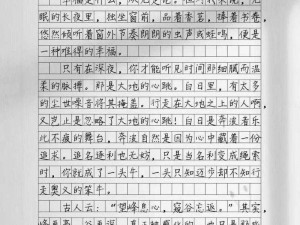 眠的长夜里，独坐窗前，品着香茗，捧着书卷，
悠然倾听着窗外节奏阴阴的虫声或蛙鸣，便是
一种难得的幸福。
只有在深夜，你才能听见时间那细腻而温
柔的脉搏。那是大地的心跳。白日里，有太多
的尘世喧音将其掩盖，行走在大地之上的人啊，
又岂止是忽略了大地的心跳。白日里奔波着乐
此不疲的舞台，奔波自然是因为心中藏着一份
追求。追名逐利也无妨，只是当名利变成绳索
时，你就成了一头牛，一头只知迈步却不知行
走奥义的笨牛。
古人云：“望峰息心，窥谷忘返。”其实，